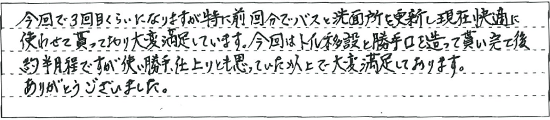 今回で3回目くらいになりますが特に前回分でバスと洗面所を更新し現在快適に
使わせて貰っており大変満足しています。今回はトイレ移設と勝手口を造って貰い完て後
約半月程ですが使い勝手、仕上りとも思っていた以上で大変満足しております。
ありがとうございました。